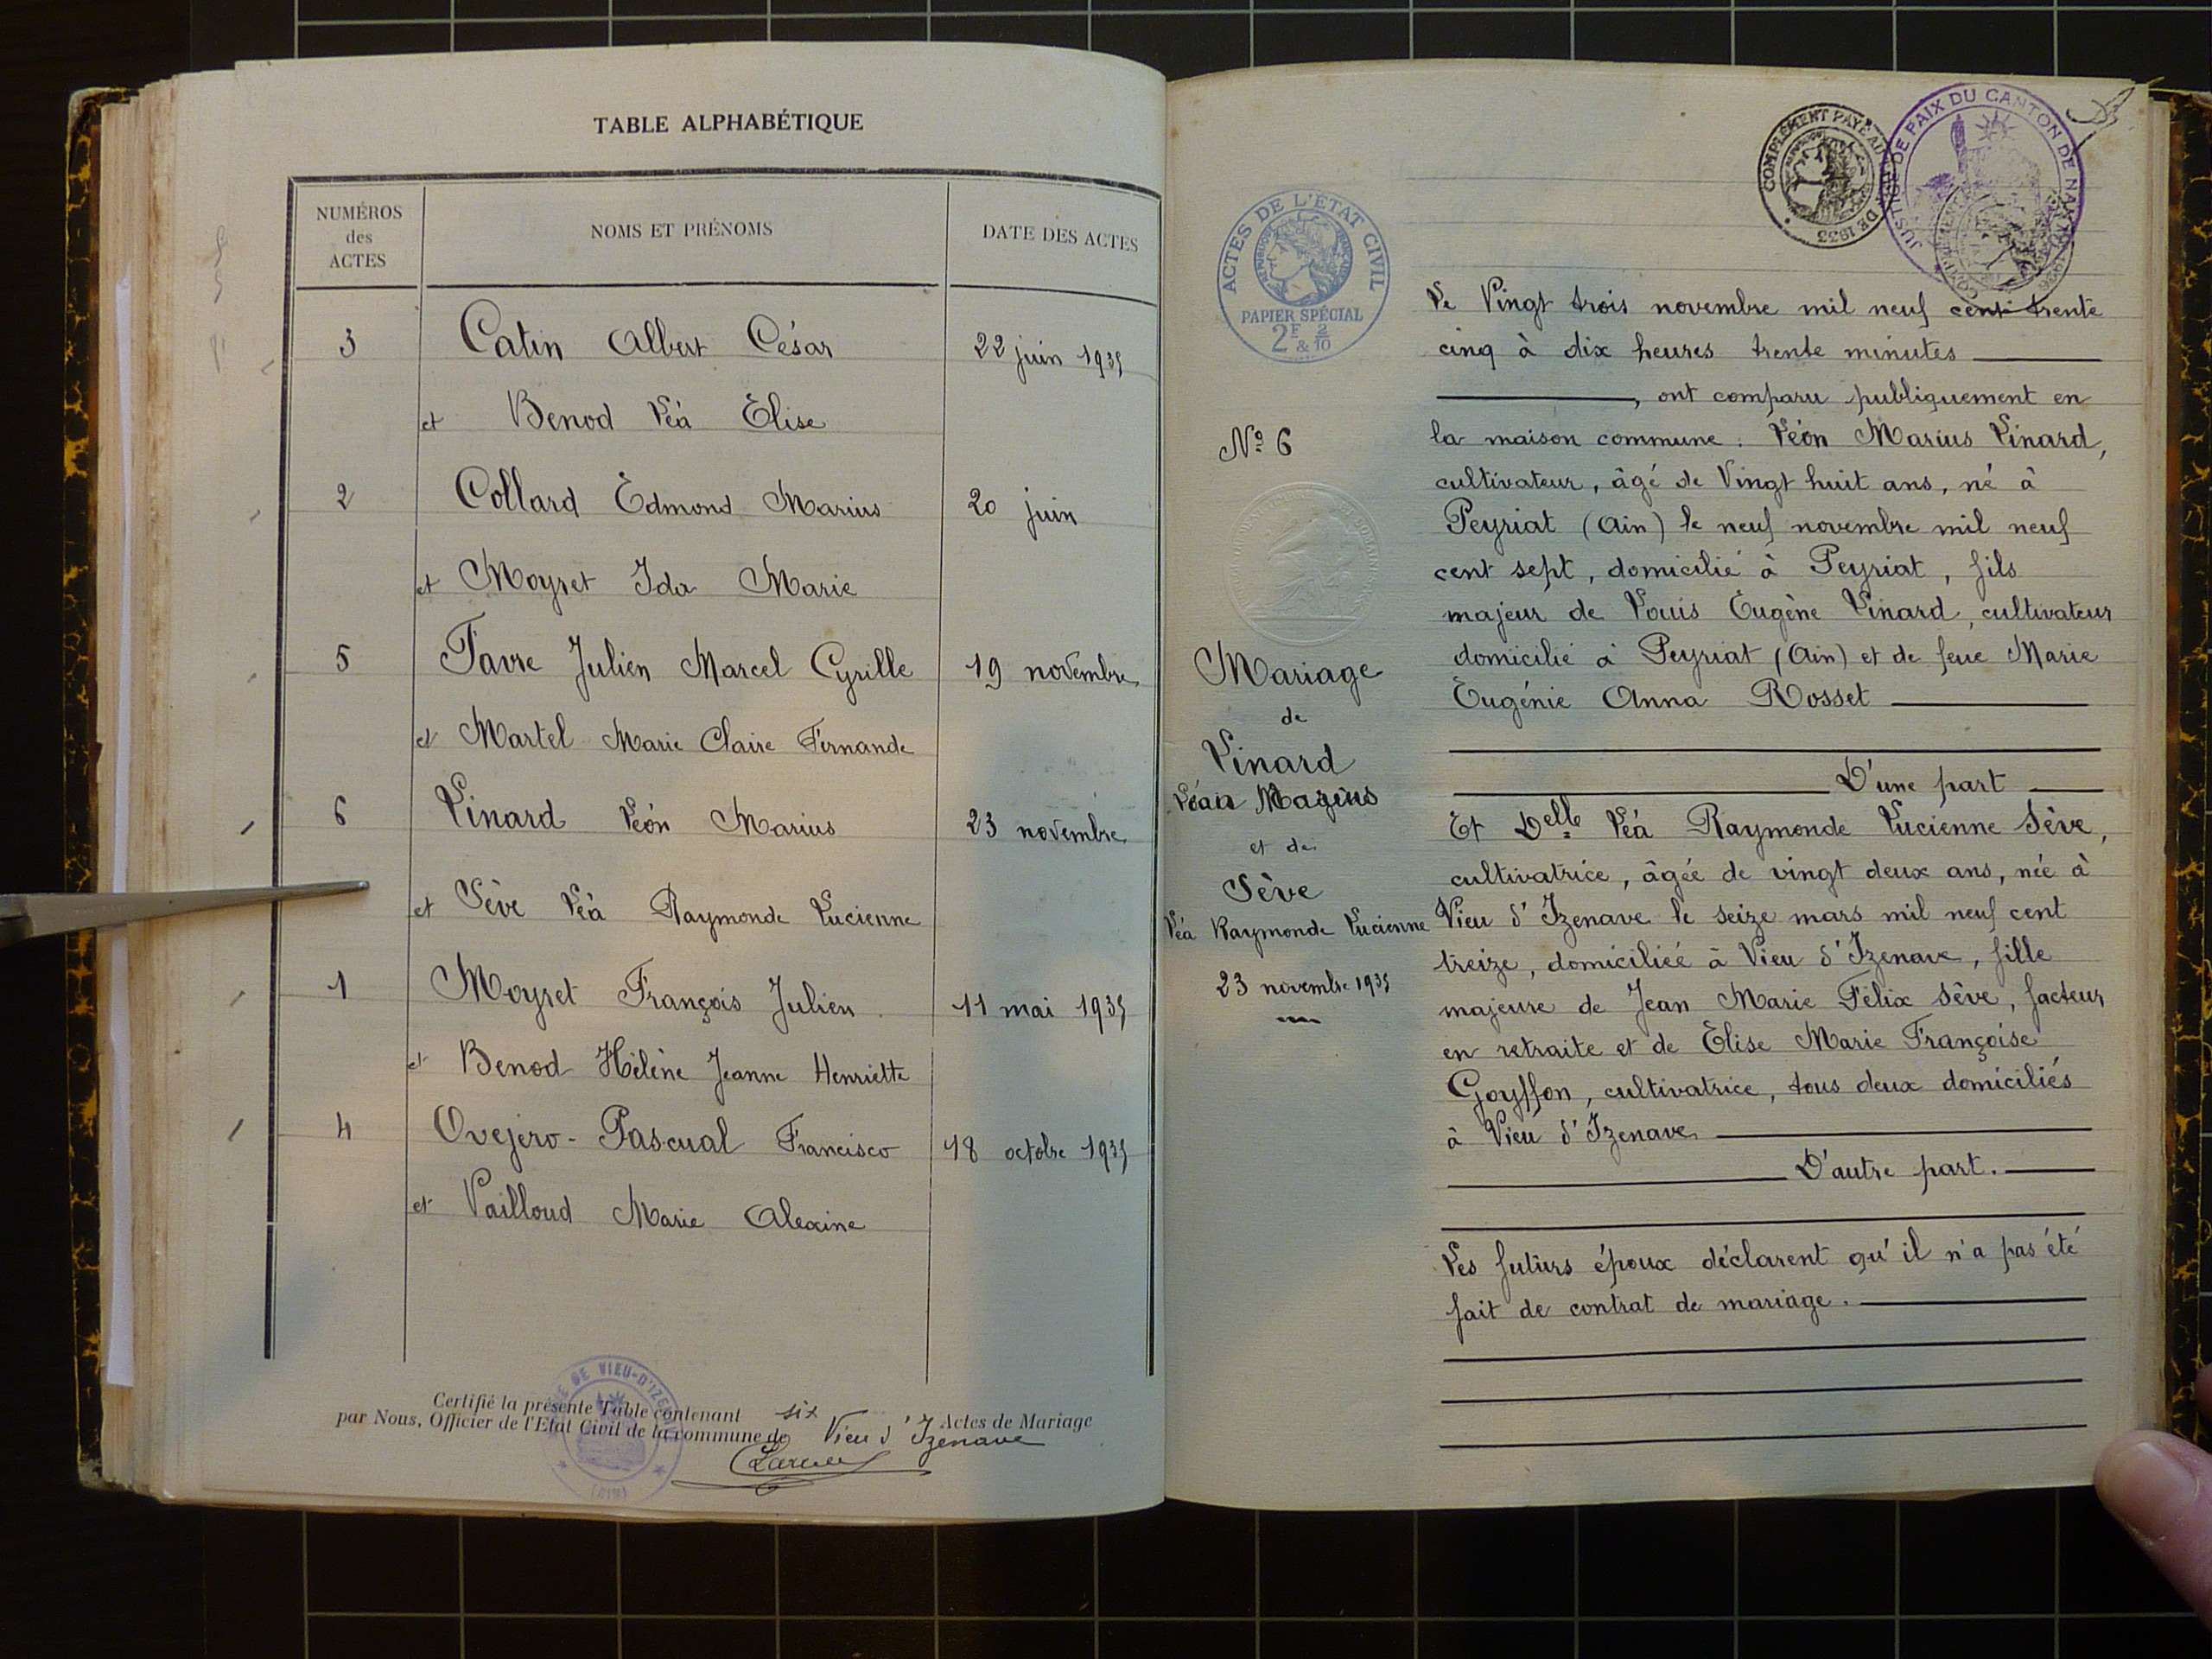 TABLE ALPHABÉTIQUE
NUMÉROS
des
ACTES
NOMS ET PRÉNOMS
DATE DES ACTES
3 Catin Albert César 22 juin 1935
et Benod Léa Elise
2 Collard Edmond Marius 20 juin
et Moyret Ida Marie
5 Favre Julien Marcel Cyrille 19 novembre
et Martel Marie Claire Fernande
6 Linard Léon Marius 23 novembre
et Sève Léa Raymonde Lucienne
1 Moyret François Julien 11 mai 1935
et Benod Hélène Jeanne Henriette
4 Ovejero-Pascual Francisco 18 octobre 1935
et Vailloud Marie Alexine
Certifié la présente Table contenant six Actes de Mariage
par Nous, Officier de l'Etat Civil de la commune de Vieu d'Izenave
DE VIEU-D'IZE
(AIN)
COMPLÉMENT PAYÉ
DE 1933
JUSTICE DE PAIX DU CANTON DE NANTUA
ACTES DE L'ÉTAT CIVIL
PAPIER SPÉCIAL
2F & 2/10
N° 6
Mariage
de
Linard
Léon Marius
et de
Sève
Léa Raymonde Lucienne
23 novembre 1935
Le Vingt trois novembre mil neuf cent trente
cinq à dix heures trente minutes
, ont comparu publiquement en
la maison commune : Léon Marius Linard,
cultivateur, âgé de Vingt huit ans, né à
Peyriat (Ain) le neuf novembre mil neuf
cent sept, domicilié à Peyriat, fils
majeur de Louis Eugène Linard, cultivateur
domicilié à Peyriat (Ain) et de feue Marie
Eugénie Anna Rosset
D'une part
Et Delle Léa Raymonde Lucienne Sève,
cultivatrice, âgée de vingt deux ans, née à
Vieu d'Izenave le seize mars mil neuf cent
treize, domiciliée à Vieu d'Izenave, fille
majeure de Jean Marie Félix Sève, facteur
en retraite et de Elise Marie Françoise
Goyffon, cultivatrice, tous deux domiciliés
à Vieu d'Izenave
D'autre part.
Les futurs époux déclarent qu'il n'a pas été
fait de contrat de mariage.